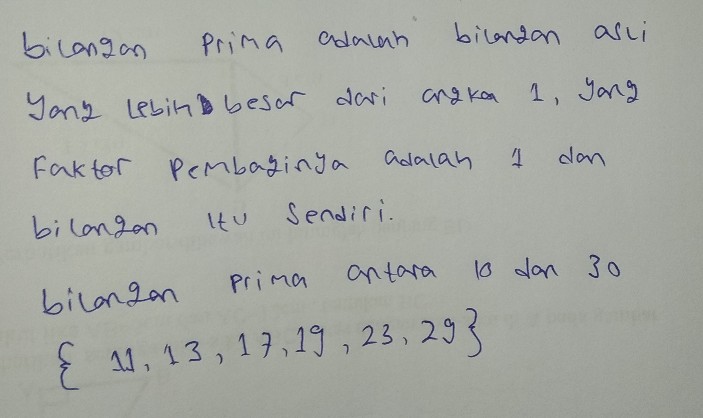 bilangan prima adalah bilangan asli
yang lebih besar dari angka 1, yang
faktor pembaginya adalah 1 dan
bilangan itu sendiri.
bilangan prima antara 10 dan 30
{ 11, 13, 17, 19, 23, 29}